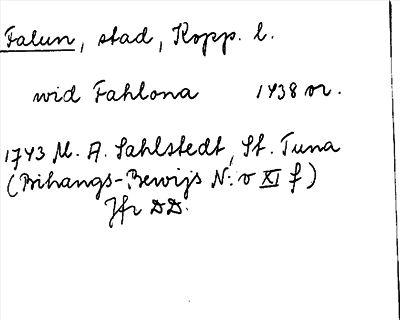 Falun, stad, Kopp. l.
wid Fahlona 1438 or.
1743 M. A. Sahlstedt, St. Tuna
(Bihangs-Bewijs N:o XI f)
Jfr DD.